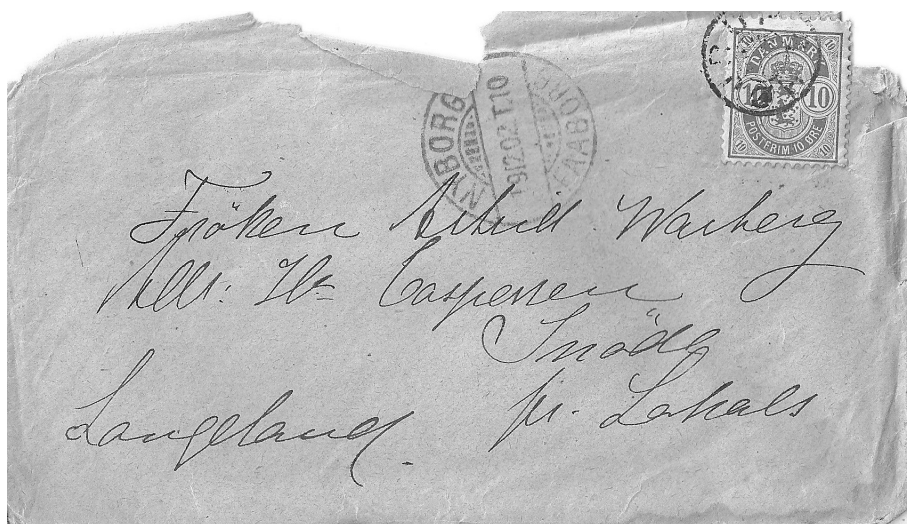 DANMARK
10 10
POSTFRIM. 10 ØRE
10 10
NYBORG
19.12.02 T.10
FAABORG
Fröken Astrid Warberg
Adr: Hr Caspersen
Snöde
pr. Lohals
Langeland.